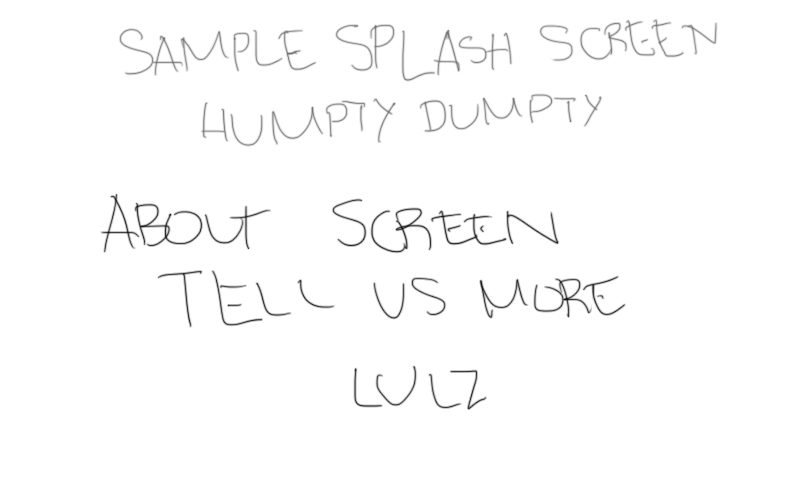 SAMPLE SPLASH SCREEN
HUMPTY DUMPTY
ABOUT SCREEN
TELL US MORE
LULZ